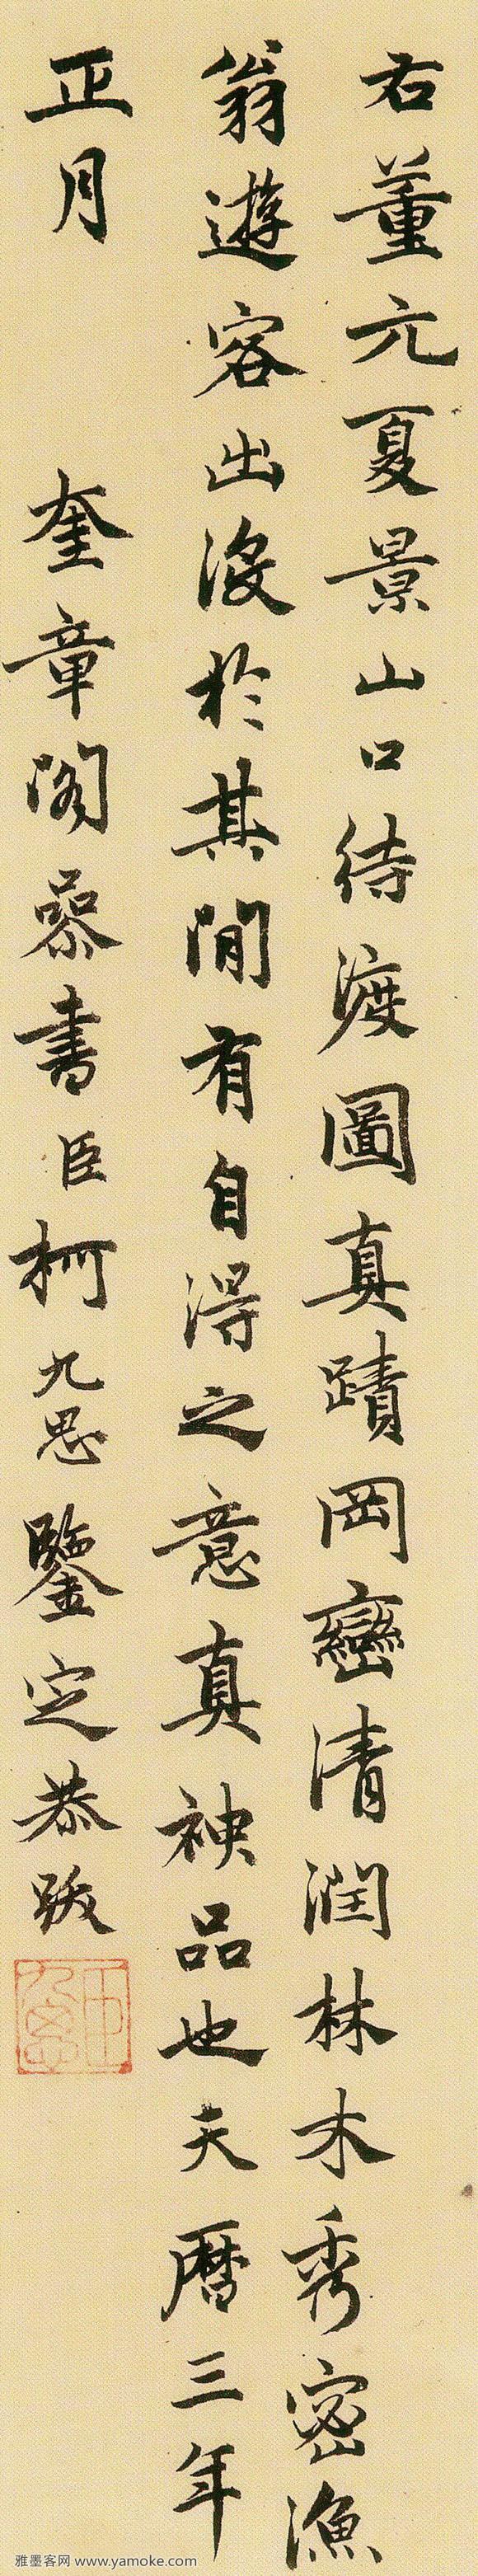 右董元夏景山口待渡圖真蹟岡巒清潤林木秀密漁
翁遊客出没於其間有自得之意真神品也天曆三年
正月 奎章閣參書臣柯九思鑒定恭跋
臣九思
雅墨客网 www.yamoke.com